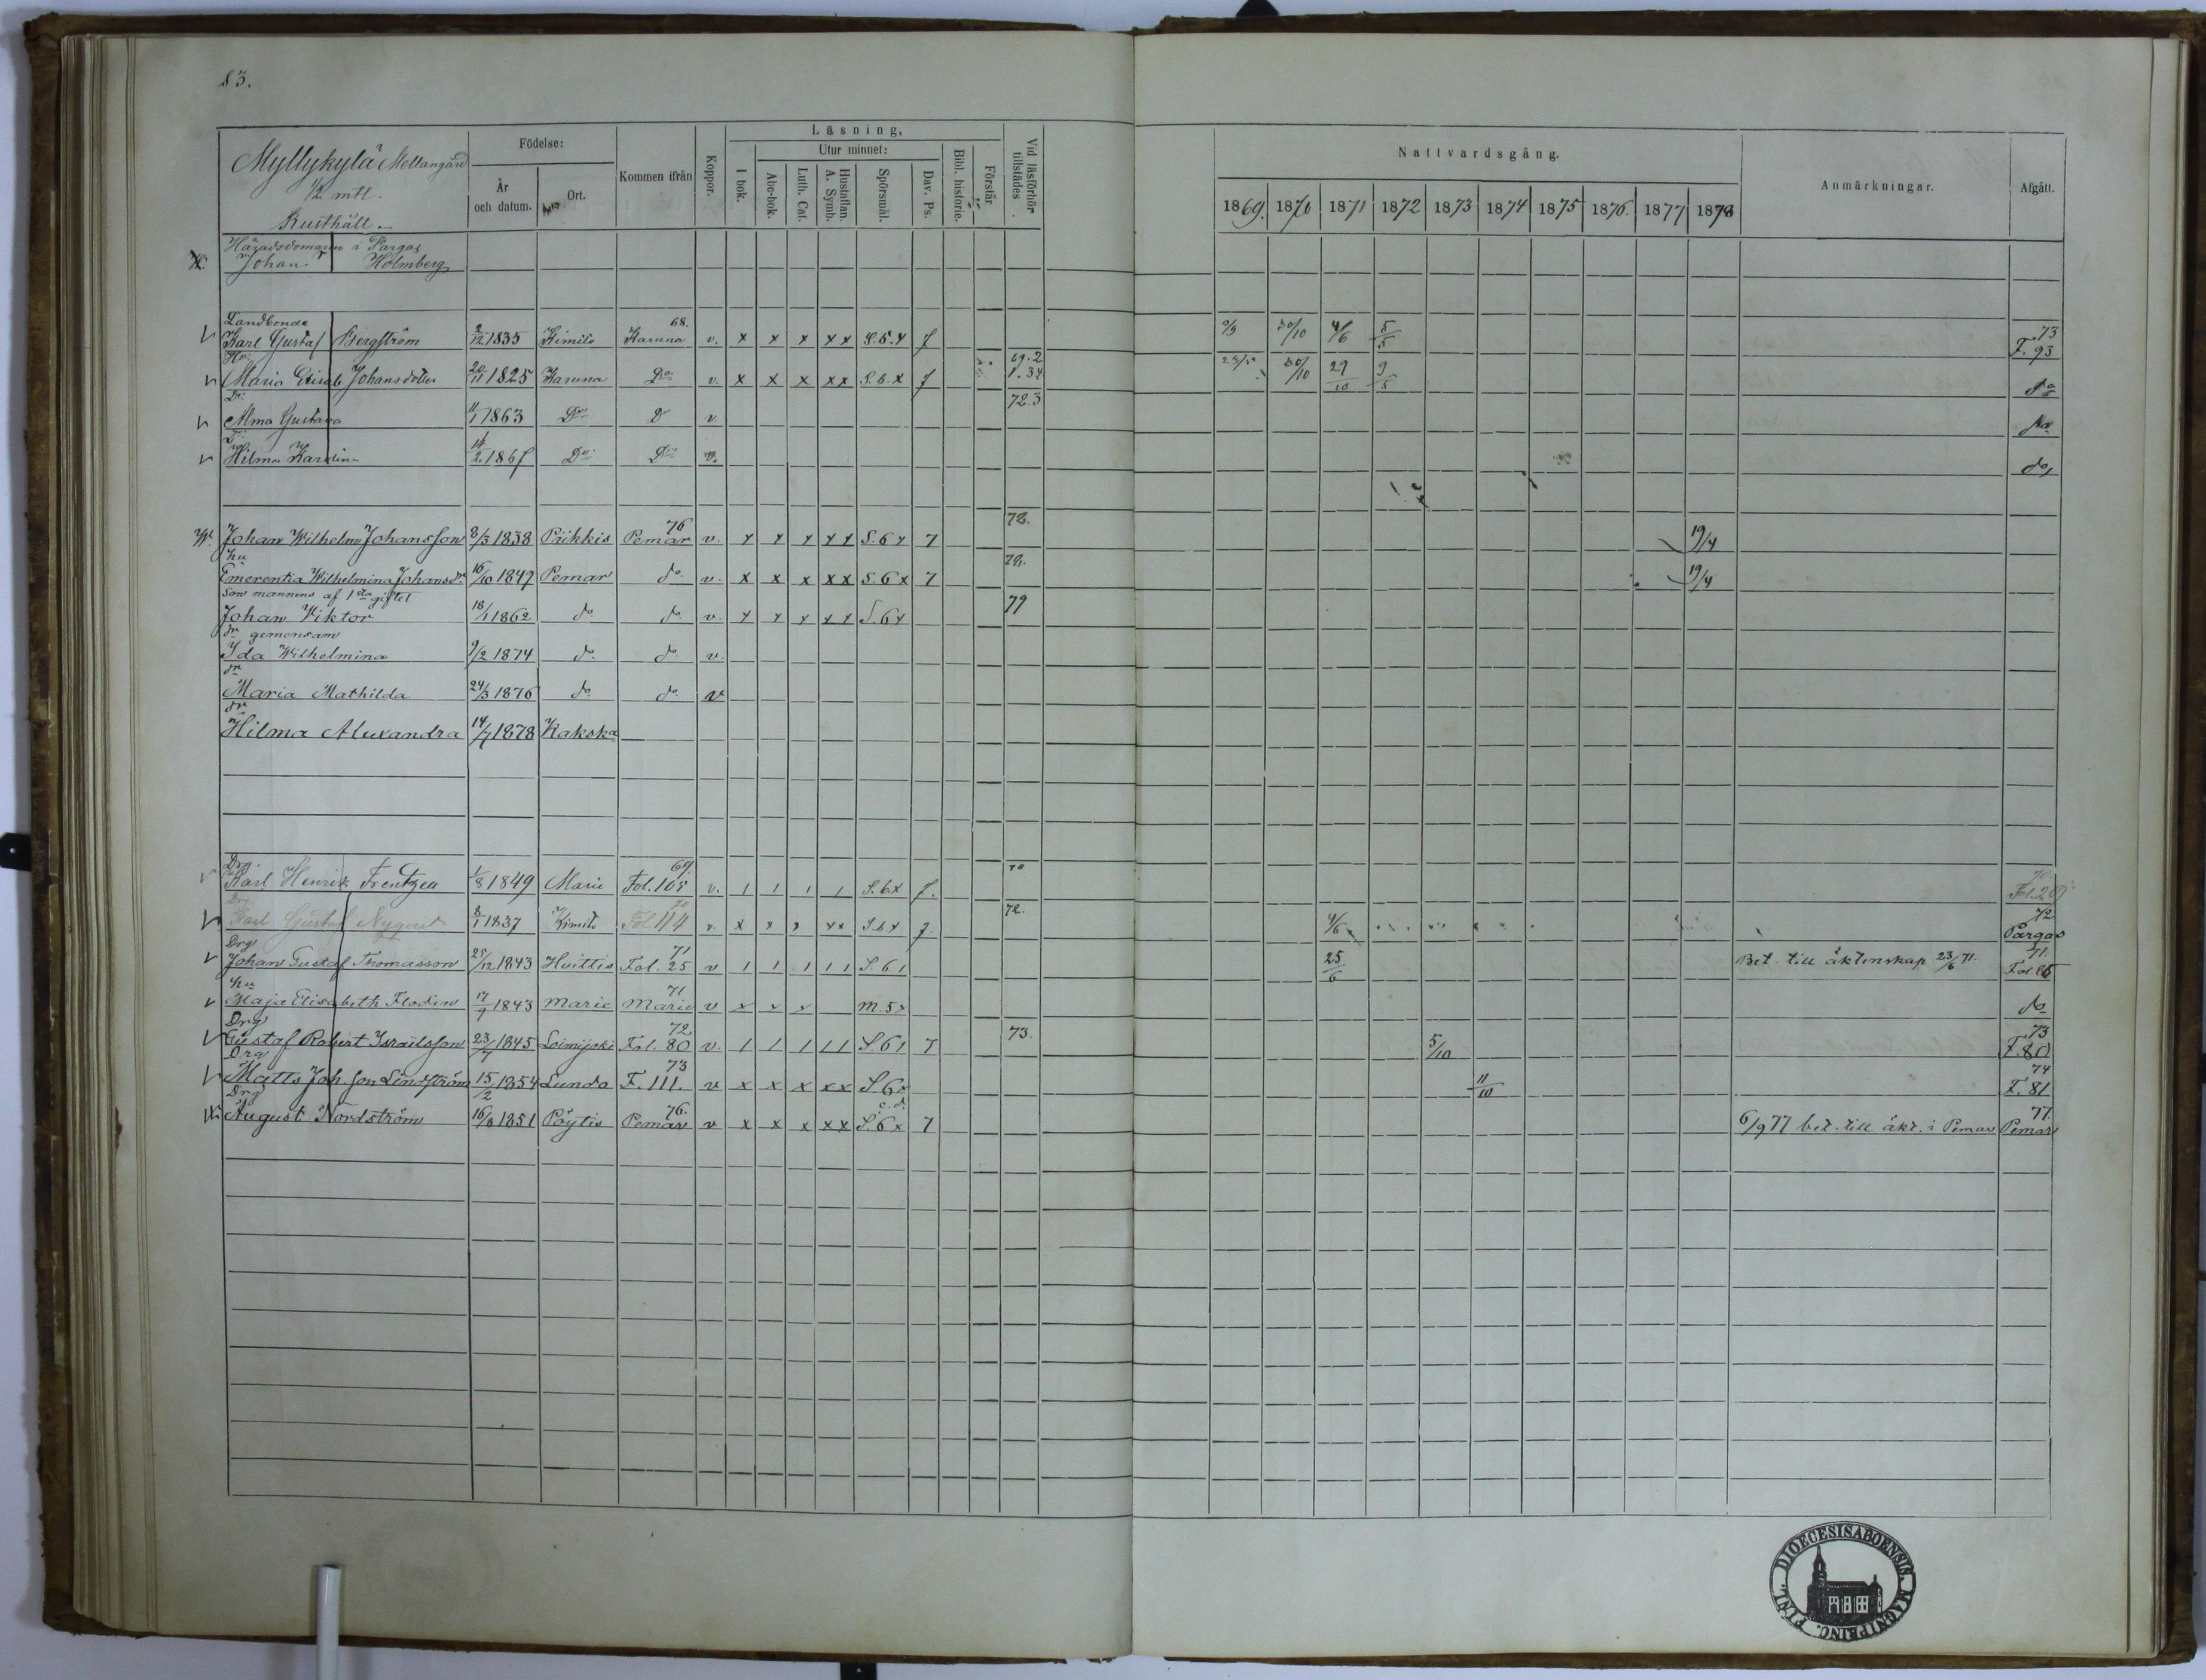 83.
Myllykylä Mellangård
1/2 mtl.
Rusthåll.
Födelse:
År och datum.
Ort.
Kommen ifrån
Koppor.
Läsning,
I bok.
Utur minnet:
Abc-bok.
Luth. Cat.
Hustaflan. A. Symb.
Spörsmål.
Dav. Ps.
Bibl. historie.
Förstår
Vid läsförhör tillstädes
Nattvardsgång.
1869. 1870 1871 1872 1873 1874 1875 1876. 1877 1878
Anmärkningar.
Afgått.
Häradsdomaren i Pargas
Johan Holmberg
Landbonde 68. 73
Karl Gustaf Bergström 2/12 1835 Kimito Karuna v. x x x x x S.6.x 7 30/10 4/6 5/5 F. 93
Hu 69.2
Maria Elisab Johansdotter 20/11 1825 Karuna Do v. x x x x x S.6.x 7 1.34 23/5 30/10 29/10 9/5 do
Dr 72.3
Alma Gustava 11/1 1863 Do D v. do
Dr
Hilma Karolina 14/2 1867 Do Do v. do
76 78.
Johan Wilhelm Johansson 8/3 1838 Piikkis Pemar v. x x x x x S.6 x 7 19/4
hu 78.
Emerentia Wilhelmina Johansdr 16/10 1849 Pemar do v. x x x x x S.6 x 7 19/4
Son mannens af 1sta giftet 79
Johan Viktor 18/1 1862 do do v. x x x x x S.6 x
dr gemensam
Ida Wilhelmina 9/2 1874 do do v.
dr
Maria Mathilda 24/3 1876 do do v
dr
Hilma Alexandra 14/7 1878 Kakska
Drg 69. 70
Karl Henrik Frentzen 1/8 1849 Marie Fol. 105 v. 1 1 1 1 S.6x 7. Fol. 20
70 72. 72
Karl Gustaf Nyqvist 8/1 1837 Kimito Fol. 114 v. x x x x x S.6 x 7. 4/6 Pargas
Drg 71 71.
Johan Gustaf Thomasson 25/12 1843 Huittis Fol. 25 v 1 1 1 1 1 S.6 1 25/6 Bet. till äktenskap 23/6 71. Fol.
hu 71
Maja Elisabeth Flodin 17/9 1843 Marie Marie v x x x M.5x do
Drg 72 73. 73
Gustaf Robert Israilsson 23/7 1845 Loimijoki Fol. 80 v. 1 1 1 1 1 S.6 1 7 5/10 F. 80
Drg 73 74
Matts Joh. son Lindström 15/2 1854 Lundo F. 111. v x x x x x S.6x 11/10 F. 81
Drg 76. c.d. 77.
August Nordström 16/8 1851 Pöytis Pemar v x x x x x S.6x 7 6/9 77 bet. till äkt. i Pemar Pemar
DIOECESIS ABOENSIS. MAGNI PRINC. FINL.